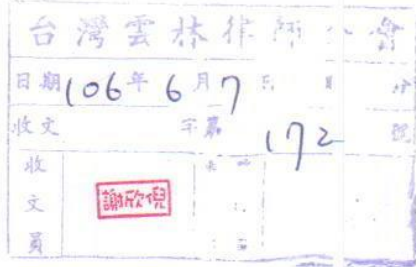 台灣雲林律師公會
日期 106年 6月 7日
收文 字第 172 號
收文員 謝欣倪